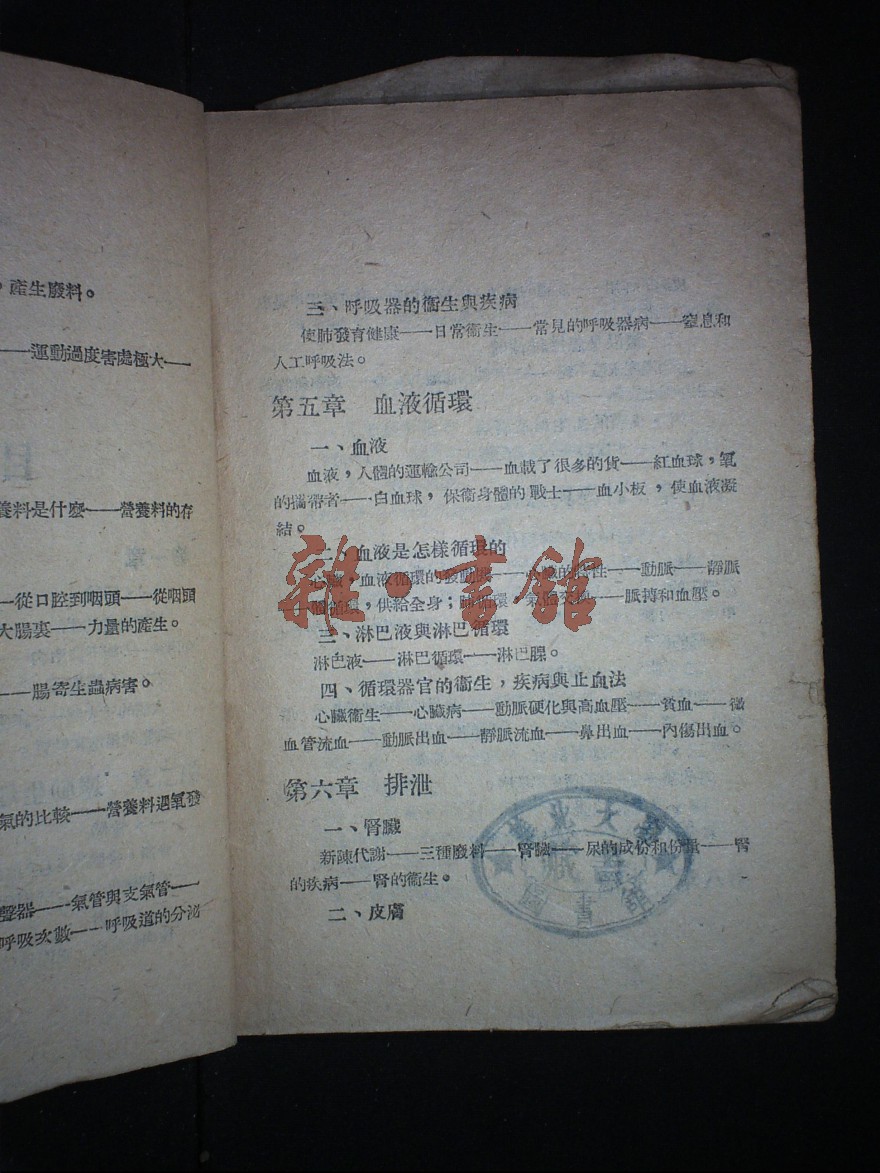 ，產生廢料。
——運動過度害處極大——
目
養料是什麼——營養料的存
—從口腔到咽頭——從咽頭
大腸裏——力量的產生。
——腸寄生蟲病害。
氣的比較——營養料遇氧發
聲器——氣管與支氣管——
呼吸次數——呼吸道的分泌
三、呼吸器的衞生與疾病
使肺發育健康——日常衞生——常見的呼吸器病——窒息和
人工呼吸法。
第五章　血液循環
一、血液
血液，人體的運輸公司——血載了很多的貨——紅血球，氧
的攜帶者——白血球，保衞身體的戰士——血小板，使血液凝
結。
二、血液是怎樣循環的
心臟，血液循環的發動——動脈——靜脈
循環，供給全身；肺循環——脈摶和血壓。
三、淋巴液與淋巴循環
淋巴液——淋巴循環——淋巴腺。
四、循環器官的衞生，疾病與止血法
心臟衞生——心臟病——動脈硬化與高血壓——貧血——微
血管流血——動脈出血——靜脈流血——鼻出血——內傷出血。
第六章　排泄
一、腎臟
新陳代謝——三種廢料——腎臟——尿的成份和份量——腎
的疾病——腎的衞生。
二、皮膚
雜·書館
華北大學
圖書館
藏書